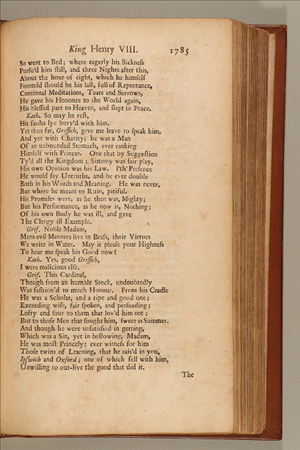 King Henry VIII. 1785
So went to Bed; where eagerly his Sickness
Pursu'd him still, and three Nights after this,
About the hour of eight, which he himself
Foretold should be his last, full of Repentance,
Continual Meditations, Tears and Sorrows,
He gave his Honours to the World again,
His blessed part to Heaven, and slept in Peace.
Kath. So may he rest,
His faults lye bury'd with him.
Yet thus far, Griffith, give me leave to speak him,
And yet with Charity; he was a Man
Of an unbounded Stomach, ever ranking
Himself with Princes. One that by Suggestion
Ty'd all the Kingdom; Simony was fair play,
His own Opinion was his Law. I'th' Presence
He would say Untruths, and be ever double
Both in his Words and Meaning. He was never,
But where he meant to Ruin, pitiful.
His Promises were, as he then was, Mighty;
But his Performance, as he now is, Nothing;
Of his own Body he was ill, and gave
The Clergy ill Example.
Grif. Noble Madam,
Mens evil Manners live in Brass, their Virtues
We write in Water. May it please your Highness
To hear me speak his Good now?
Kath. Yes, good Griffith,
I were malicious else.
Grif. This Cardinal,
Though from an humble Stock, undoubtedly
Was fashion'd to much Honour. From his Cradle
He was a Scholar, and a ripe and good one;
Exceeding wise, fair spoken, and perswading;
Lofty and sour to them that lov'd him not;
But to those Men that sought him, sweet as Summer.
And though he were unsatisfied in getting,
Which was a Sin, yet in bestowing, Madam,
He was most Princely; ever witness for him
Those twins of Learning, that he rais'd in you,
Ipswich and Oxford; one of which fell with him,
Unwilling to out-live the good that did it.
The